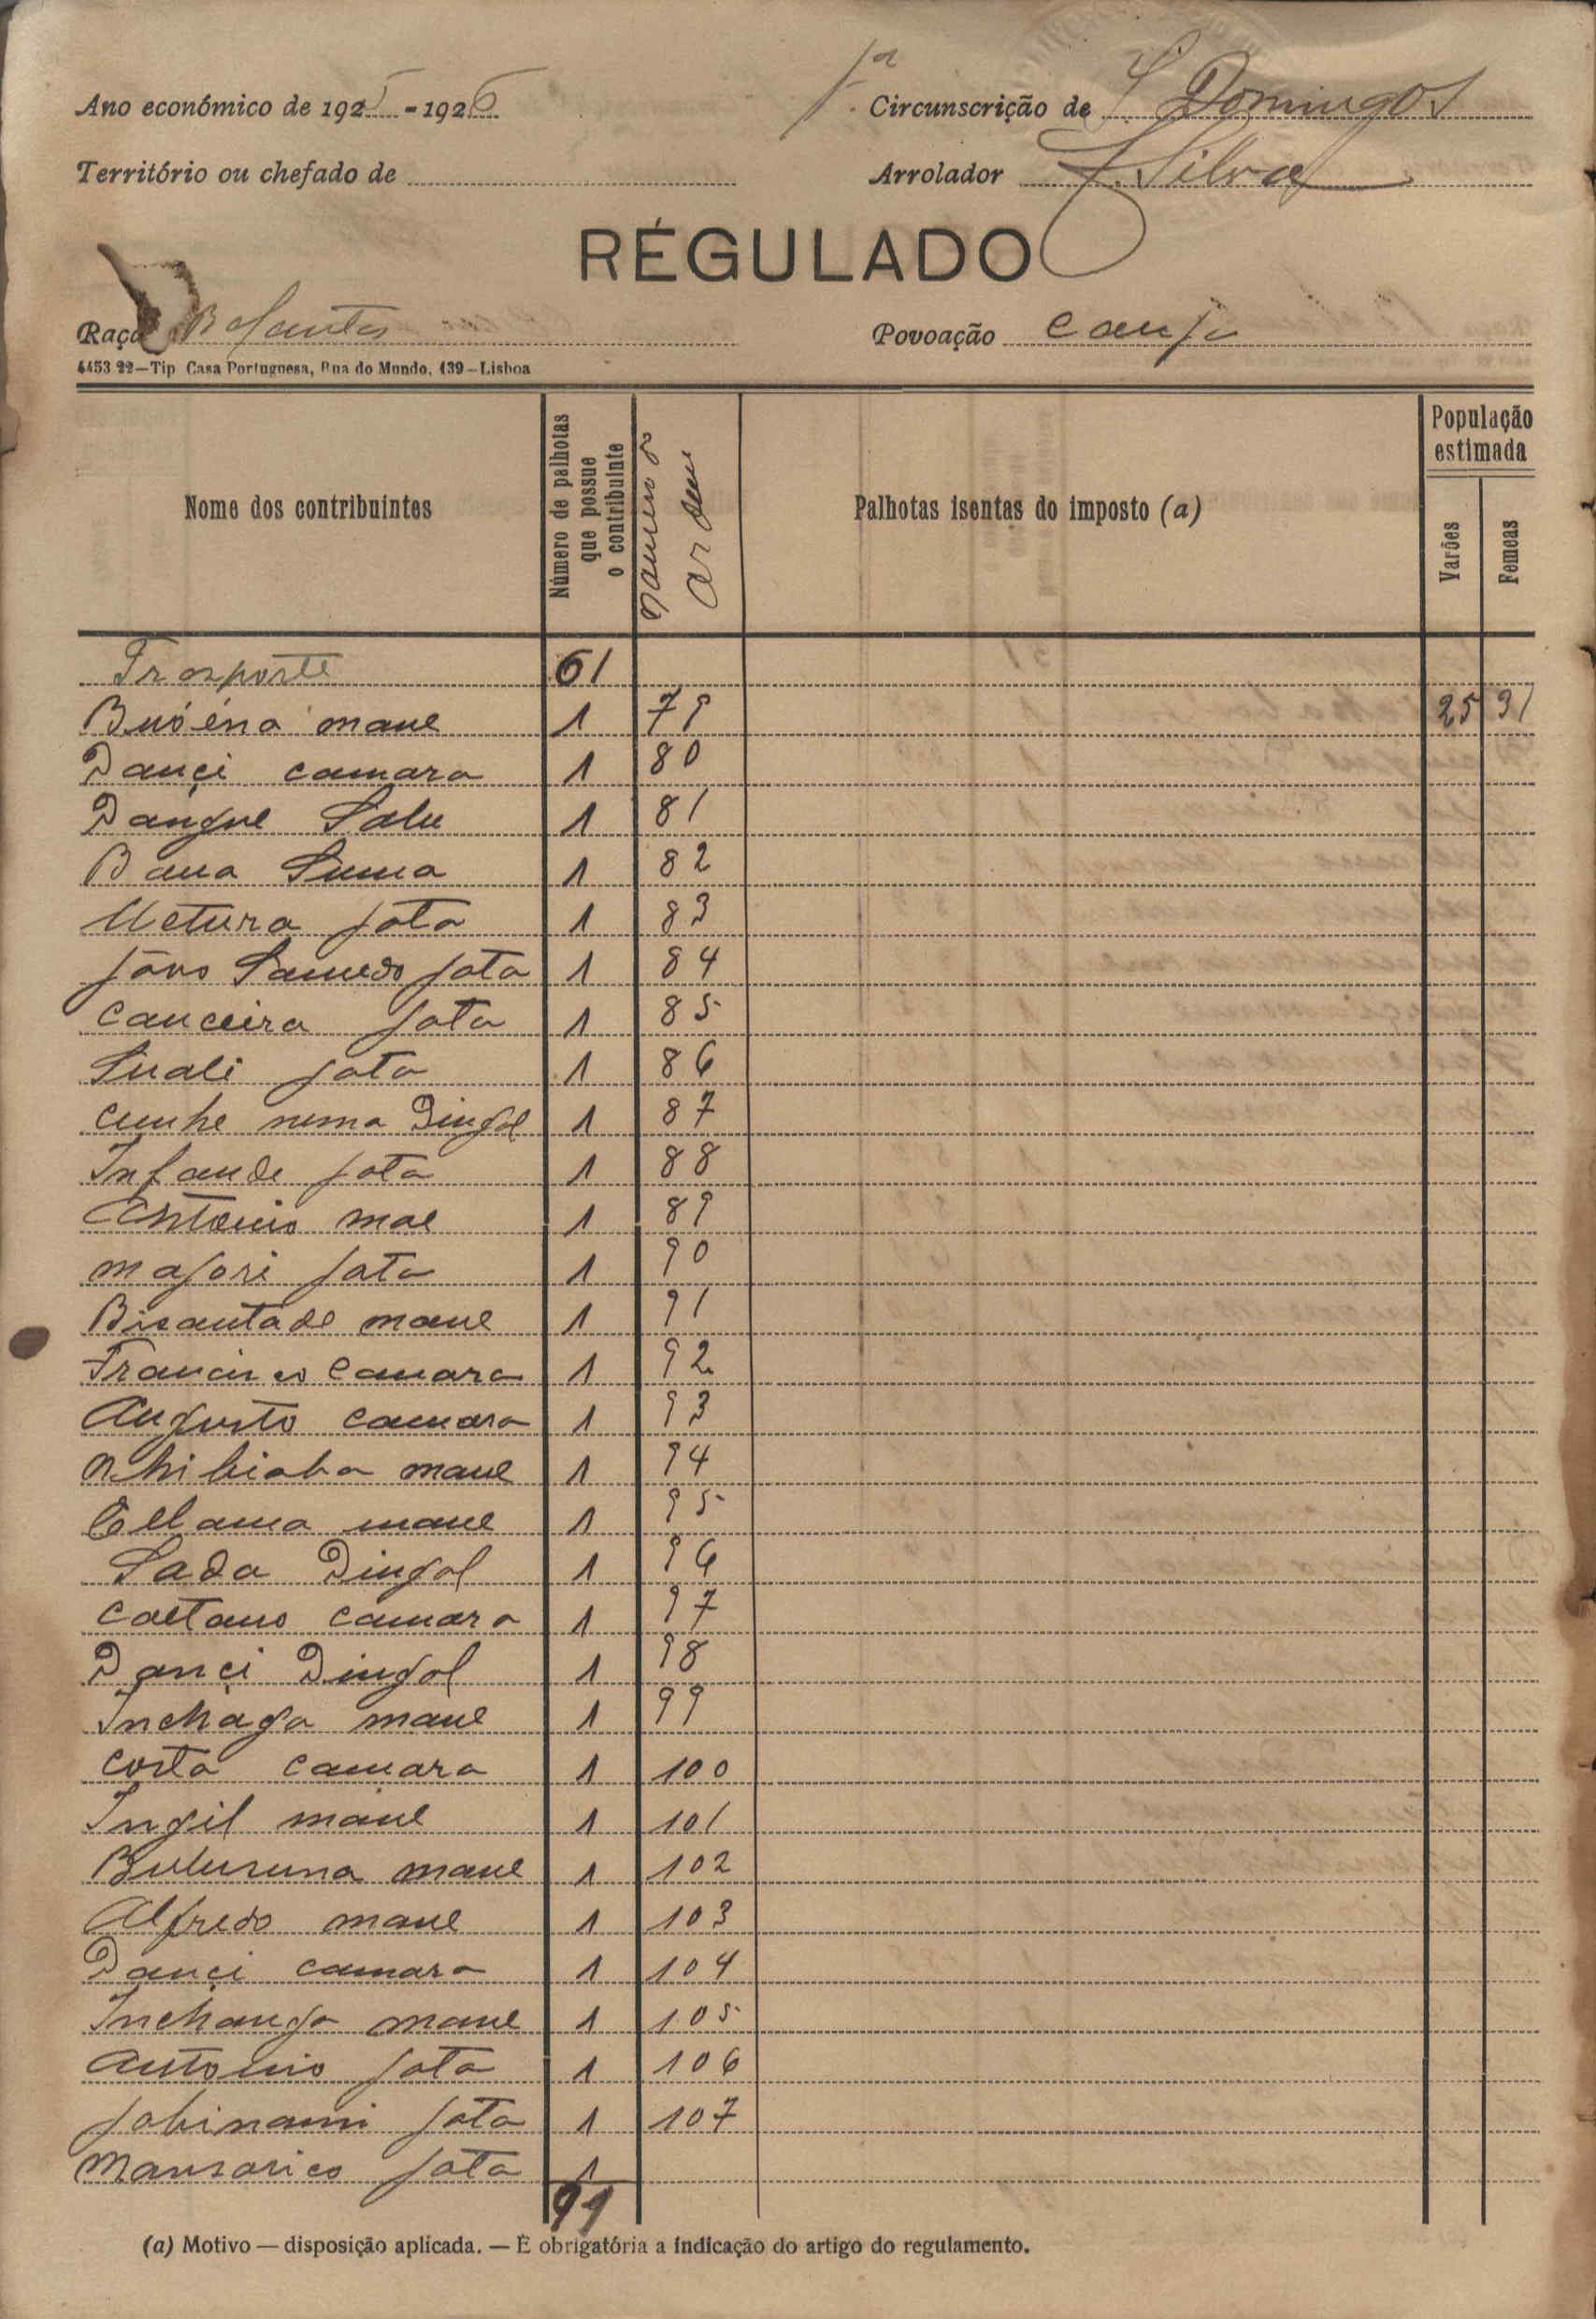 Ano económico de 1925-1926 1ª Circunscrição de S. Domingos
Território ou chefado de Arrolador Silva
RÉGULADO
Raça Balantes Povoação Canja
4453 22—Tip Casa Portuguesa, Rua do Mundo, 139—Lisboa
Nome dos contribuintes Número de palhotas que possue o contribuinte Palhotas isentas do imposto (a) População estimada
Varões Femeas
Trasporte 61
mane 1 79 25 31
Dançi camara 1 80
Dangue Salu 1 81
Bana Suma 1 82
jata 1 83
jata 1 84
Canceira jata 1 85
Suali jata 1 86
Cunhe numa Dingol 1 87
Infande jata 1 88
Antonio mae 1 89
majori jata 1 90
Bisantade mane 1 91
Francisco Camara 1 92
Augusto camara 1 93
mane 1 94
mane 1 95
Sada Dingol 1 96
Caetano camara 1 97
Dançi Dingol 1 98
Inchaga mane 1 99
Costa camara 1 100
Ingil mane 1 101
mane 1 102
Alfredo mane 1 103
Dançi camara 1 104
Inchanga mane 1 105
Antonio jata 1 106
jata 1 107
Mansarico jata 1
91
(a) Motivo — disposição aplicada. — É obrigatória a indicação do artigo do regulamento.